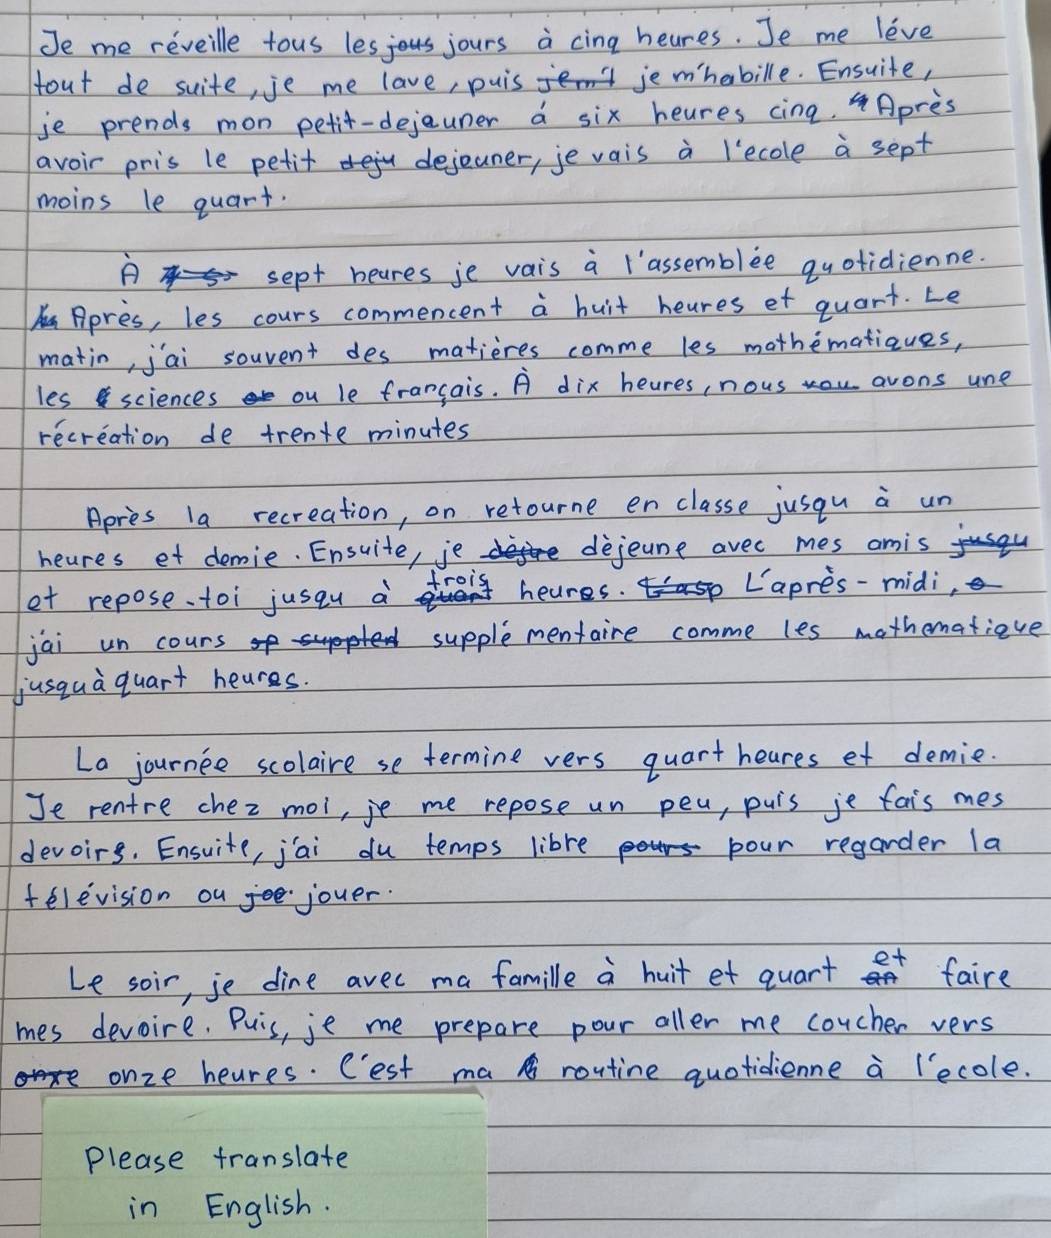 Je me réveille tous les jours à cinq heures. Je me léve
tout de suite, je me lave, puis je m'habille. Ensuite,
je prends mon petit-dejeuner á six heures cinq. Après
avoir pris le petit dejeuner, je vais à l'ecole à sept
moins le quart.
À sept heures je vais à l'assemblée quotidienne.
Après, les cours commencent à huit heures et quart. Le
matin, j'ai souvent des matières comme les mathématiques,
les sciences ou le français. À dix heures, nous avons une
récréation de trente minutes
Après la recreation, on retourne en classe jusqu à un
heures et demie. Ensuite, je dèjeune avec mes amis
et repose-toi jusqu à trois heures. L'après-midi,
j'ai un cours supplémentaire comme les mathematique
jusquà quart heures.
La journée scolaire se termine vers quart heures et demie.
Je rentre chez moi, je me repose un peu, puis je fais mes
devoirs. Ensuite, j'ai du temps libre pour regarder la
télévision ou jouer.
Le soir, je dine avec ma famille à huit et quart et faire
mes devoire. Puis, je me prepare pour aller me coucher vers
onze heures. C'est ma routine quotidienne à l'ecole.
Please translate
in English.